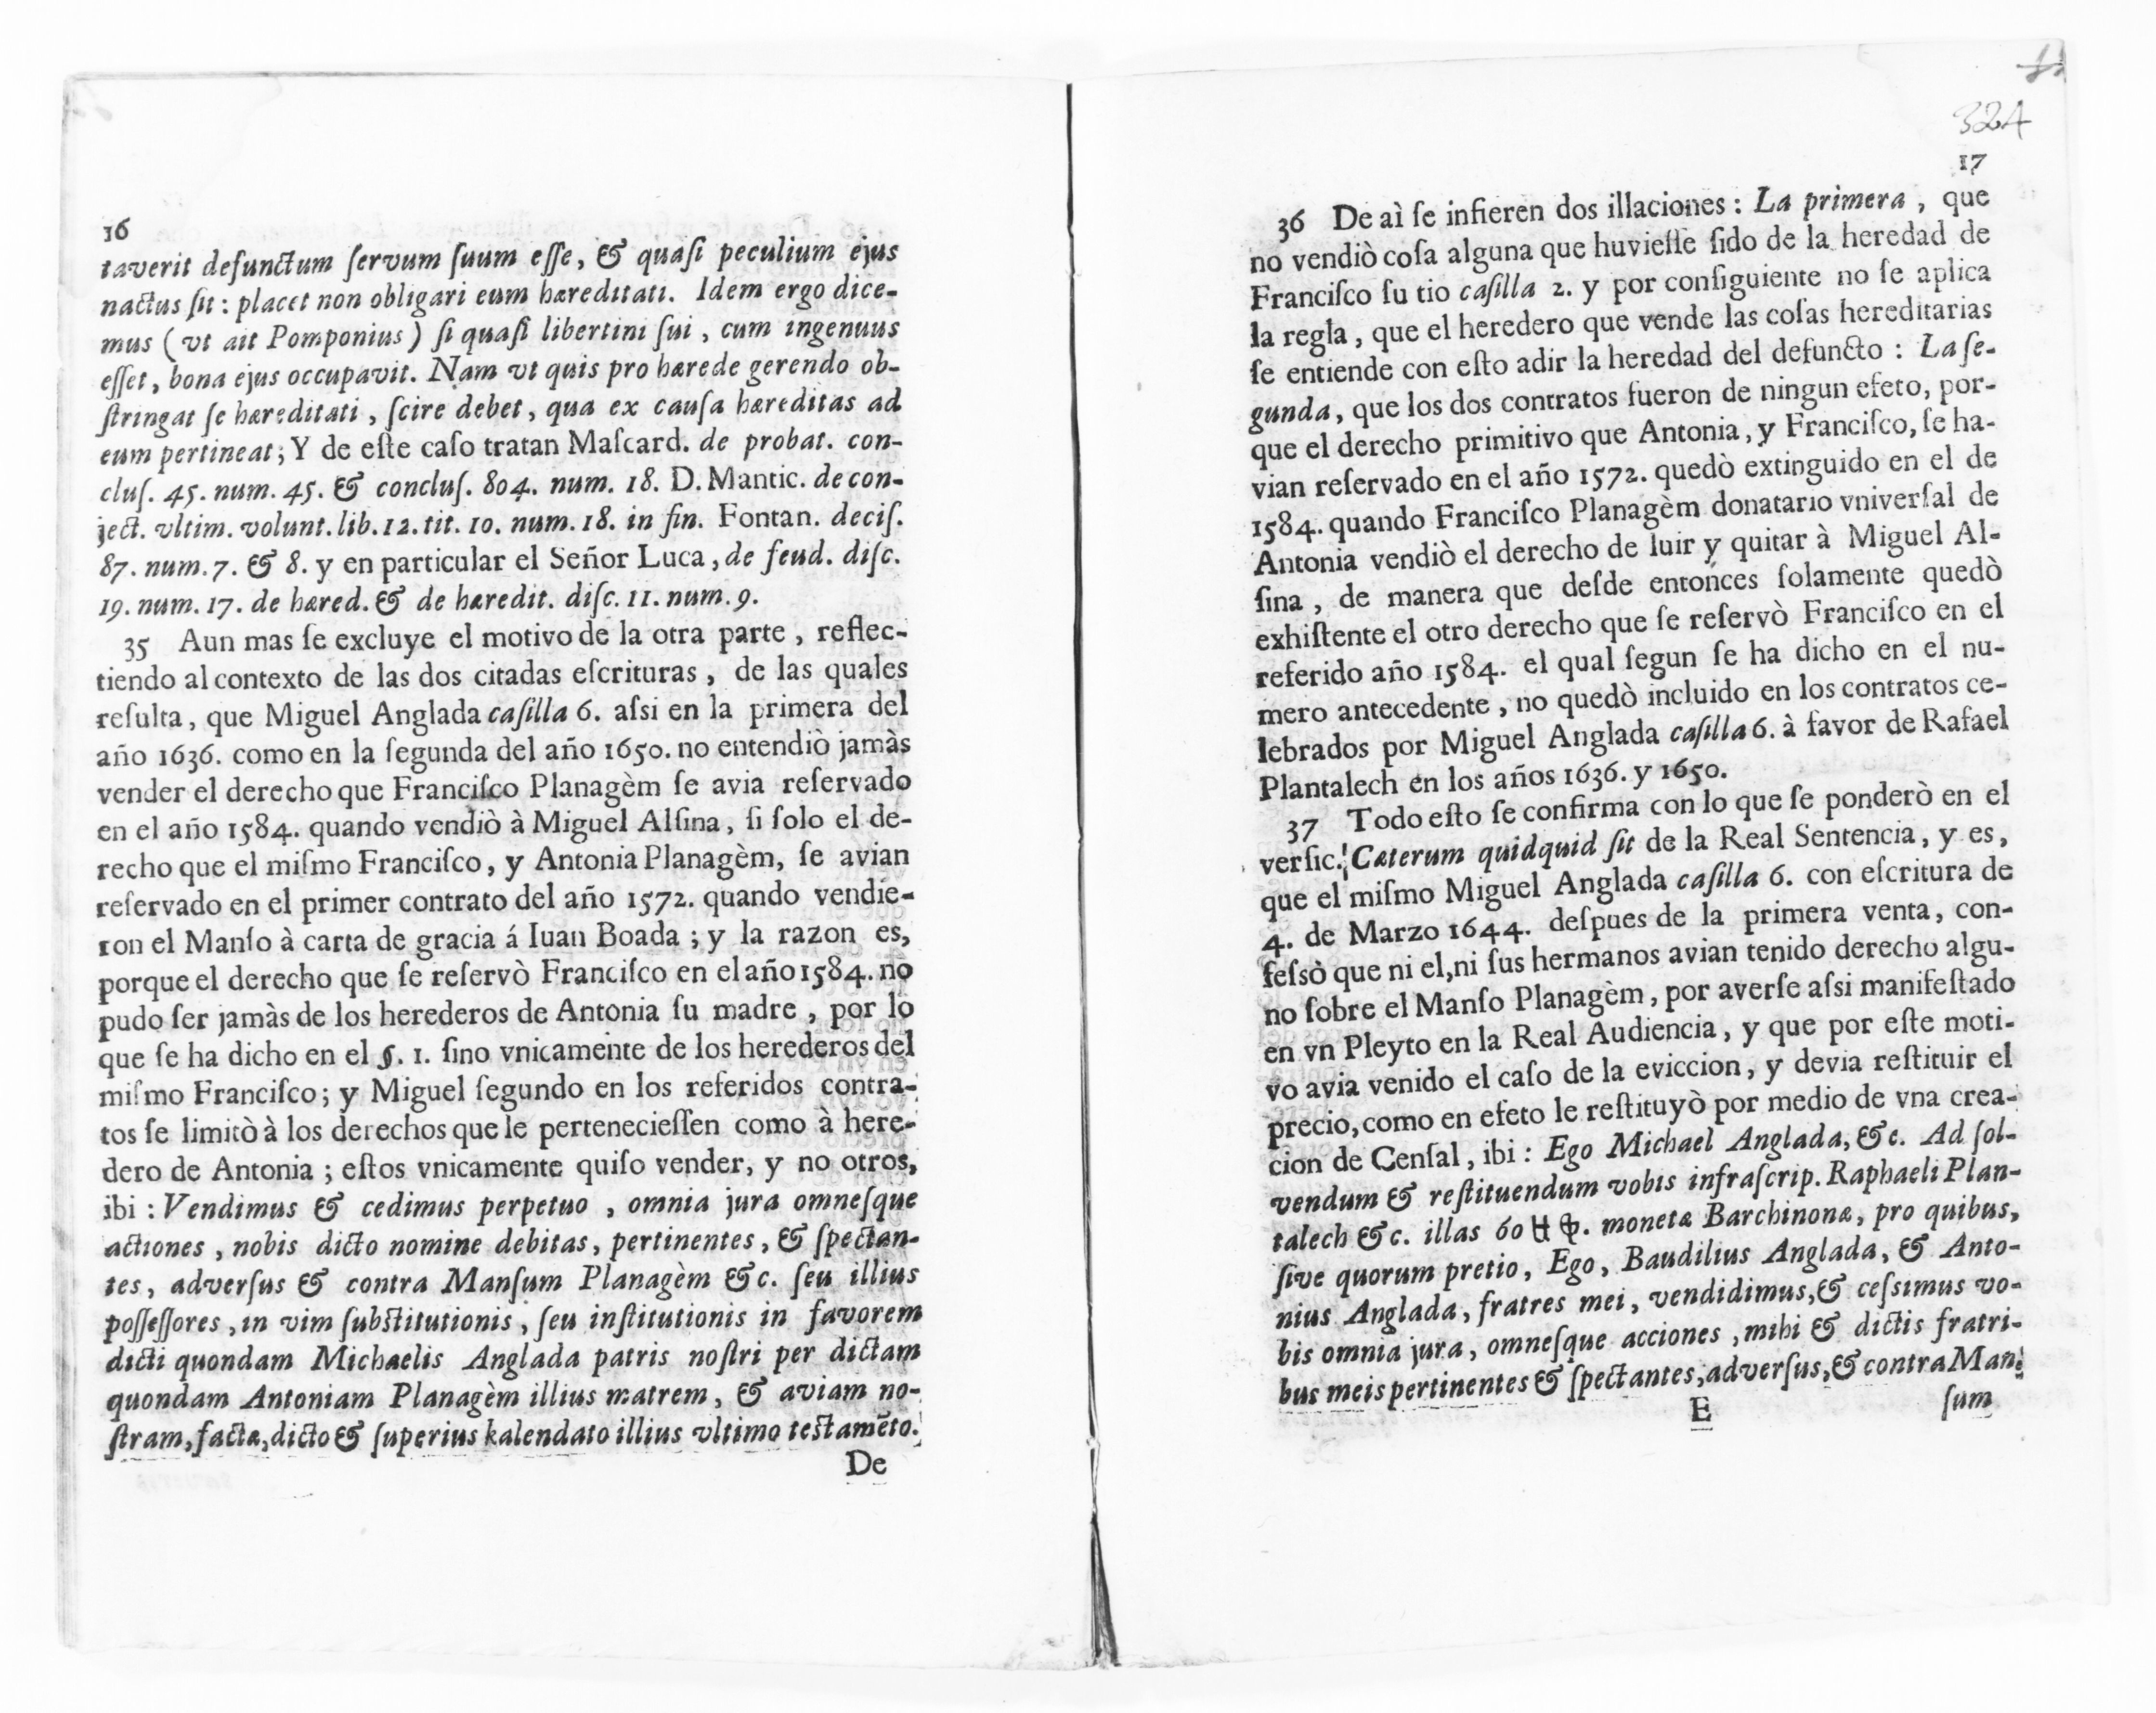 16
taverit defunctum ſervum ſuum eſſe, & quaſi peculium ejus
nactus ſit : placet non obligari eum hæreditati. Idem ergo dice-
mus ( vt ait Pomponius ) ſi quaſi libertini ſui , cum ingenuus
eſſet, bona ejus occupavit. Nam vt quis pro hærede gerendo ob-
ſtringat ſe hæreditati , ſcire debet, qua ex cauſa hæreditas ad
eum pertineat; Y de eſte caſo tratan Maſcard. de probat. con-
cluſ. 45. num. 45. & concluſ. 804. num. 18. D. Mantic. de con-
ject. vltim. volunt. lib. 12. tit. 10. num. 18. in fin. Fontan. deciſ.
87. num. 7. & 8. y en particular el Señor Luca, de feud. diſc.
19. num. 17. de hæred. & de hæredit. diſc. 11. num. 9.
35 Aun mas ſe excluye el motivo de la otra parte , reflec-
tiendo al contexto de las dos citadas eſcrituras , de las quales
reſulta, que Miguel Anglada caſilla 6. aſsi en la primera del
año 1636. como en la ſegunda del año 1650. no entendiò jamàs
vender el derecho que Franciſco Planagèm ſe avia reſervado
en el año 1584. quando vendiò à Miguel Alſina, ſi ſolo el de-
recho que el miſmo Franciſco, y Antonia Planagèm, ſe avian
reſervado en el primer contrato del año 1572. quando vendie-
ron el Manſo à carta de gracia á Iuan Boada ; y la razon es,
porque el derecho que ſe reſervò Franciſco en el año 1584. no
pudo ſer jamàs de los herederos de Antonia ſu madre , por lo
que ſe ha dicho en el §. 1. ſino vnicamente de los herederos del
miſmo Franciſco; y Miguel ſegundo en los referidos contra-
tos ſe limitò à los derechos que le pertenecieſſen como à here-
dero de Antonia ; eſtos vnicamente quiſo vender, y no otros,
ibi : Vendimus & cedimus perpetuo , omnia jura omneſque
actiones , nobis dicto nomine debitas, pertinentes, & ſpectan-
tes, adverſus & contra Manſum Planagèm &c. ſeu illius
poſſeſſores , in vim ſubſtitutionis , ſeu inſtitutionis in favorem
dicti quondam Michaelis Anglada patris noſtri per dictam
quondam Antoniam Planagèm illius matrem, & aviam no-
ſtram, factæ, dicto & ſuperius kalendato illius vltimo teſtamẽto.
De
324
17
36 De aì ſe infieren dos illaciones : La primera , que
no vendiò coſa alguna que huvieſſe ſido de la heredad de
Franciſco ſu tio caſilla 2. y por conſiguiente no ſe aplica
la regla , que el heredero que vende las coſas hereditarias
ſe entiende con eſto adir la heredad del defuncto : La ſe-
gunda, que los dos contratos fueron de ningun efeto, por-
que el derecho primitivo que Antonia, y Franciſco, ſe ha-
vian reſervado en el año 1572. quedò extinguido en el de
1584. quando Franciſco Planagèm donatario vniverſal de
Antonia vendiò el derecho de luir y quitar à Miguel Al-
ſina , de manera que deſde entonces ſolamente quedò
exhiſtente el otro derecho que ſe reſervò Franciſco en el
referido año 1584. el qual ſegun ſe ha dicho en el nu-
mero antecedente , no quedò incluido en los contratos ce-
lebrados por Miguel Anglada caſilla 6. à favor de Rafael
Plantalech en los años 1636. y 1650.
37 Todo eſto ſe confirma con lo que ſe ponderò en el
verſic. Cæterum quidquid ſit de la Real Sentencia, y es,
que el miſmo Miguel Anglada caſilla 6. con eſcritura de
4. de Marzo 1644. deſpues de la primera venta, con-
feſsò que ni el, ni ſus hermanos avian tenido derecho algu-
no ſobre el Manſo Planagèm, por averſe aſsi manifeſtado
en vn Pleyto en la Real Audiencia, y que por eſte moti-
vo avia venido el caſo de la eviccion, y devia reſtituir el
precio, como en efeto le reſtituyò por medio de vna crea-
cion de Cenſal, ibi : Ego Michael Anglada, &c. Ad ſol-
vendum & reſtituendum vobis infraſcrip. Raphaeli Plan-
talech &c. illas 60 monetæ Barchinonæ, pro quibus,
ſive quorum pretio, Ego, Baudilius Anglada, & Anto-
nius Anglada, fratres mei, vendidimus, & ceſsimus vo-
bis omnia jura, omneſque acciones , mihi & dictis fratri-
bus meis pertinentes & ſpectantes, adverſus, & contra Man-
E ſum